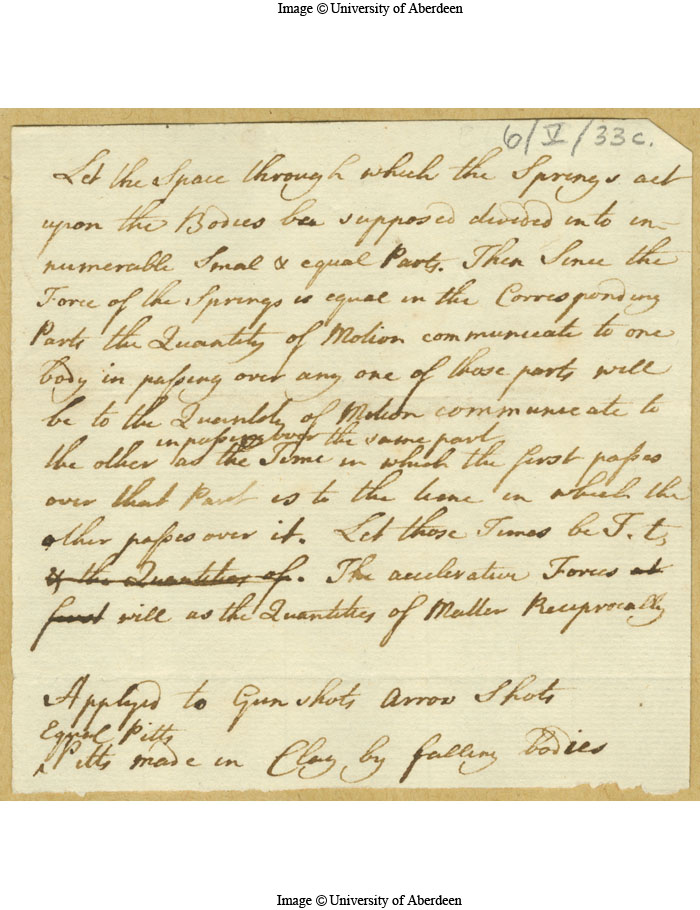 Image © University of Aberdeen
6/V/33c.
Let the Space through which the Springs act
upon the Bodies be supposed divided into in-
numerable Smal & equal Parts. Then Since the
Force of the Springs is equal in the Corresponding
Parts the Quantity of Motion communicate to one
body in passing over any one of those parts will
be to the Quantity of Motion communicate to
in passing over the same part
the other as the Time in which the first passes
over that Part is to the time in which the
other passes over it. Let those Times be T. t,
& the Quantities of. The accelerative Forces at
first will as the Quantities of Matter Reciprocally
Applyed to Gun shots Arrow Shots
Equal Pitts
^ Pitts made in Clay by falling bodies
Image © University of Aberdeen